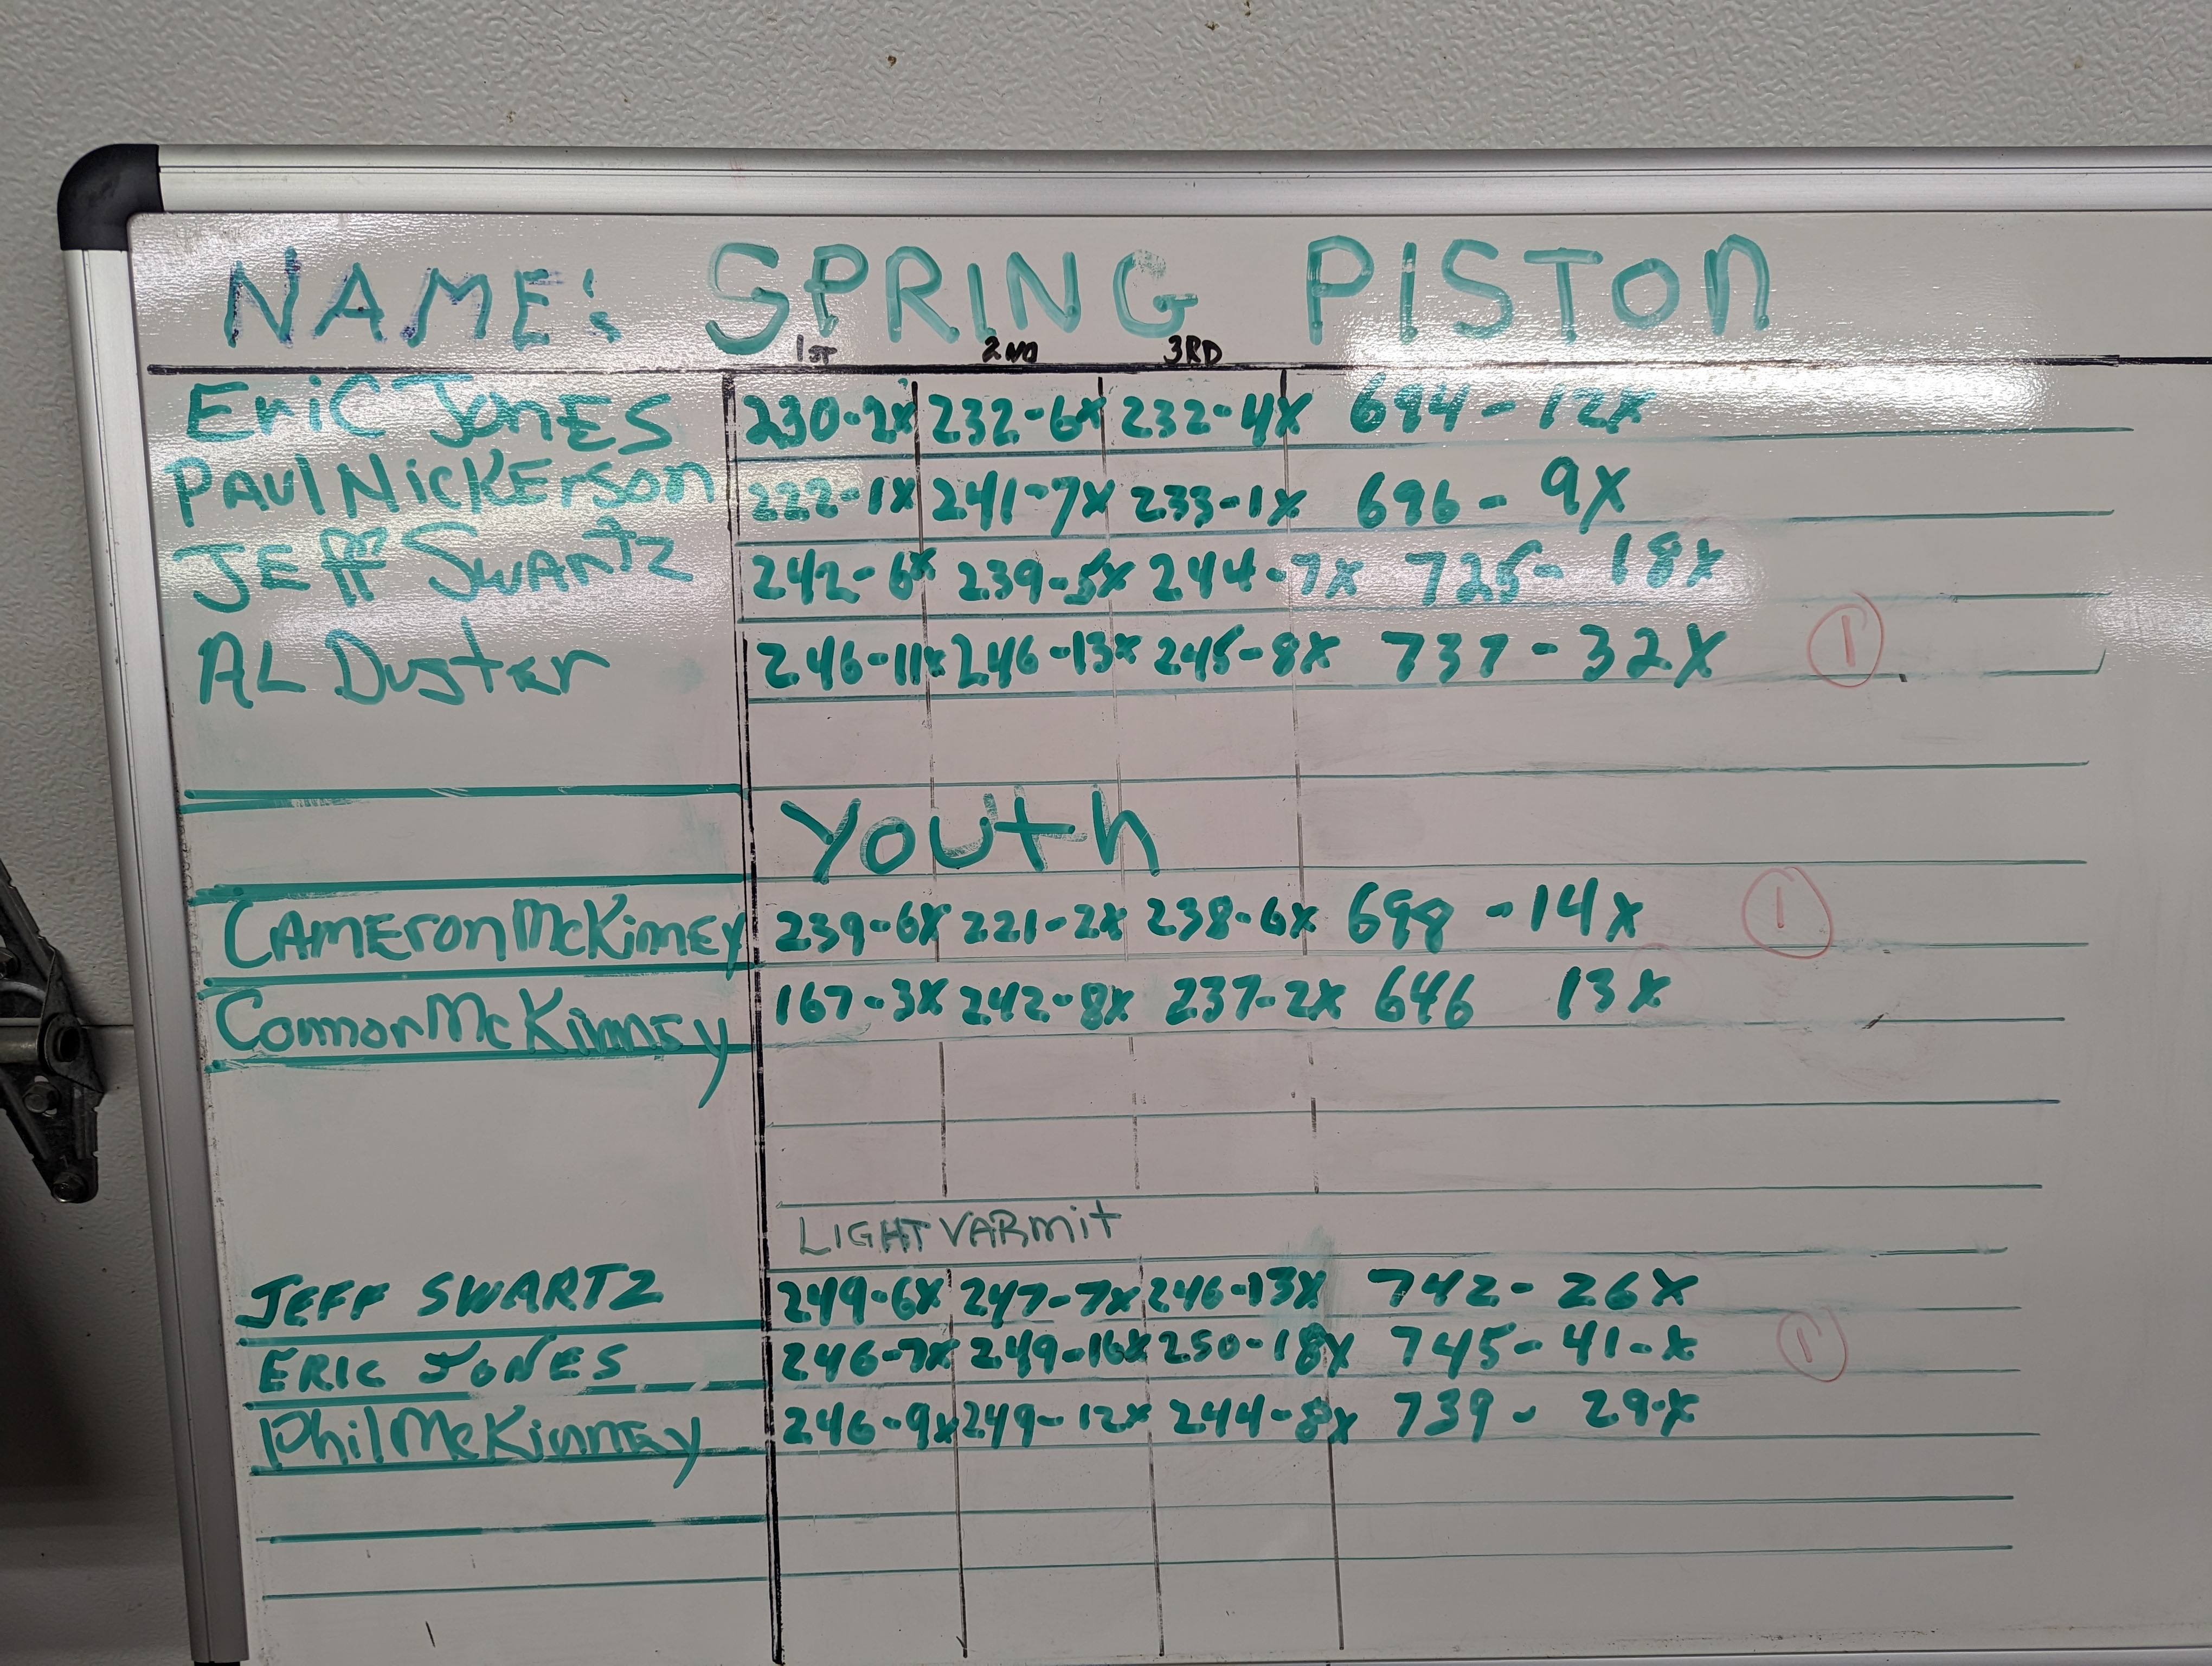 NAME: SPRING PISTON
1ST 2ND 3RD
Eric Jones 230-2x 232-6x 232-4x 694-12x
PAUl NicKErson 222-1x 241-7x 233-1x 696-9x
JEff SwArtz 242-6x 239-5x 244-7x 725-18x
AL Duster 246-11x 246-13x 245-8x 737-32x 1
Youth
CAmEronMcKinnEy 239-6x 221-2x 238-6x 698-14x 1
ConnorMcKinnEy 167-3x 242-8x 237-2x 646 13x
LIGHT VARmit
JEFF SWARTZ 249-6x 247-7x 246-13x 742-26x
ERIC JONES 246-7x 249-16x 250-18x 745-41-x 1
PhilMcKinnEy 246-9x 249-12x 244-8x 739-29-x